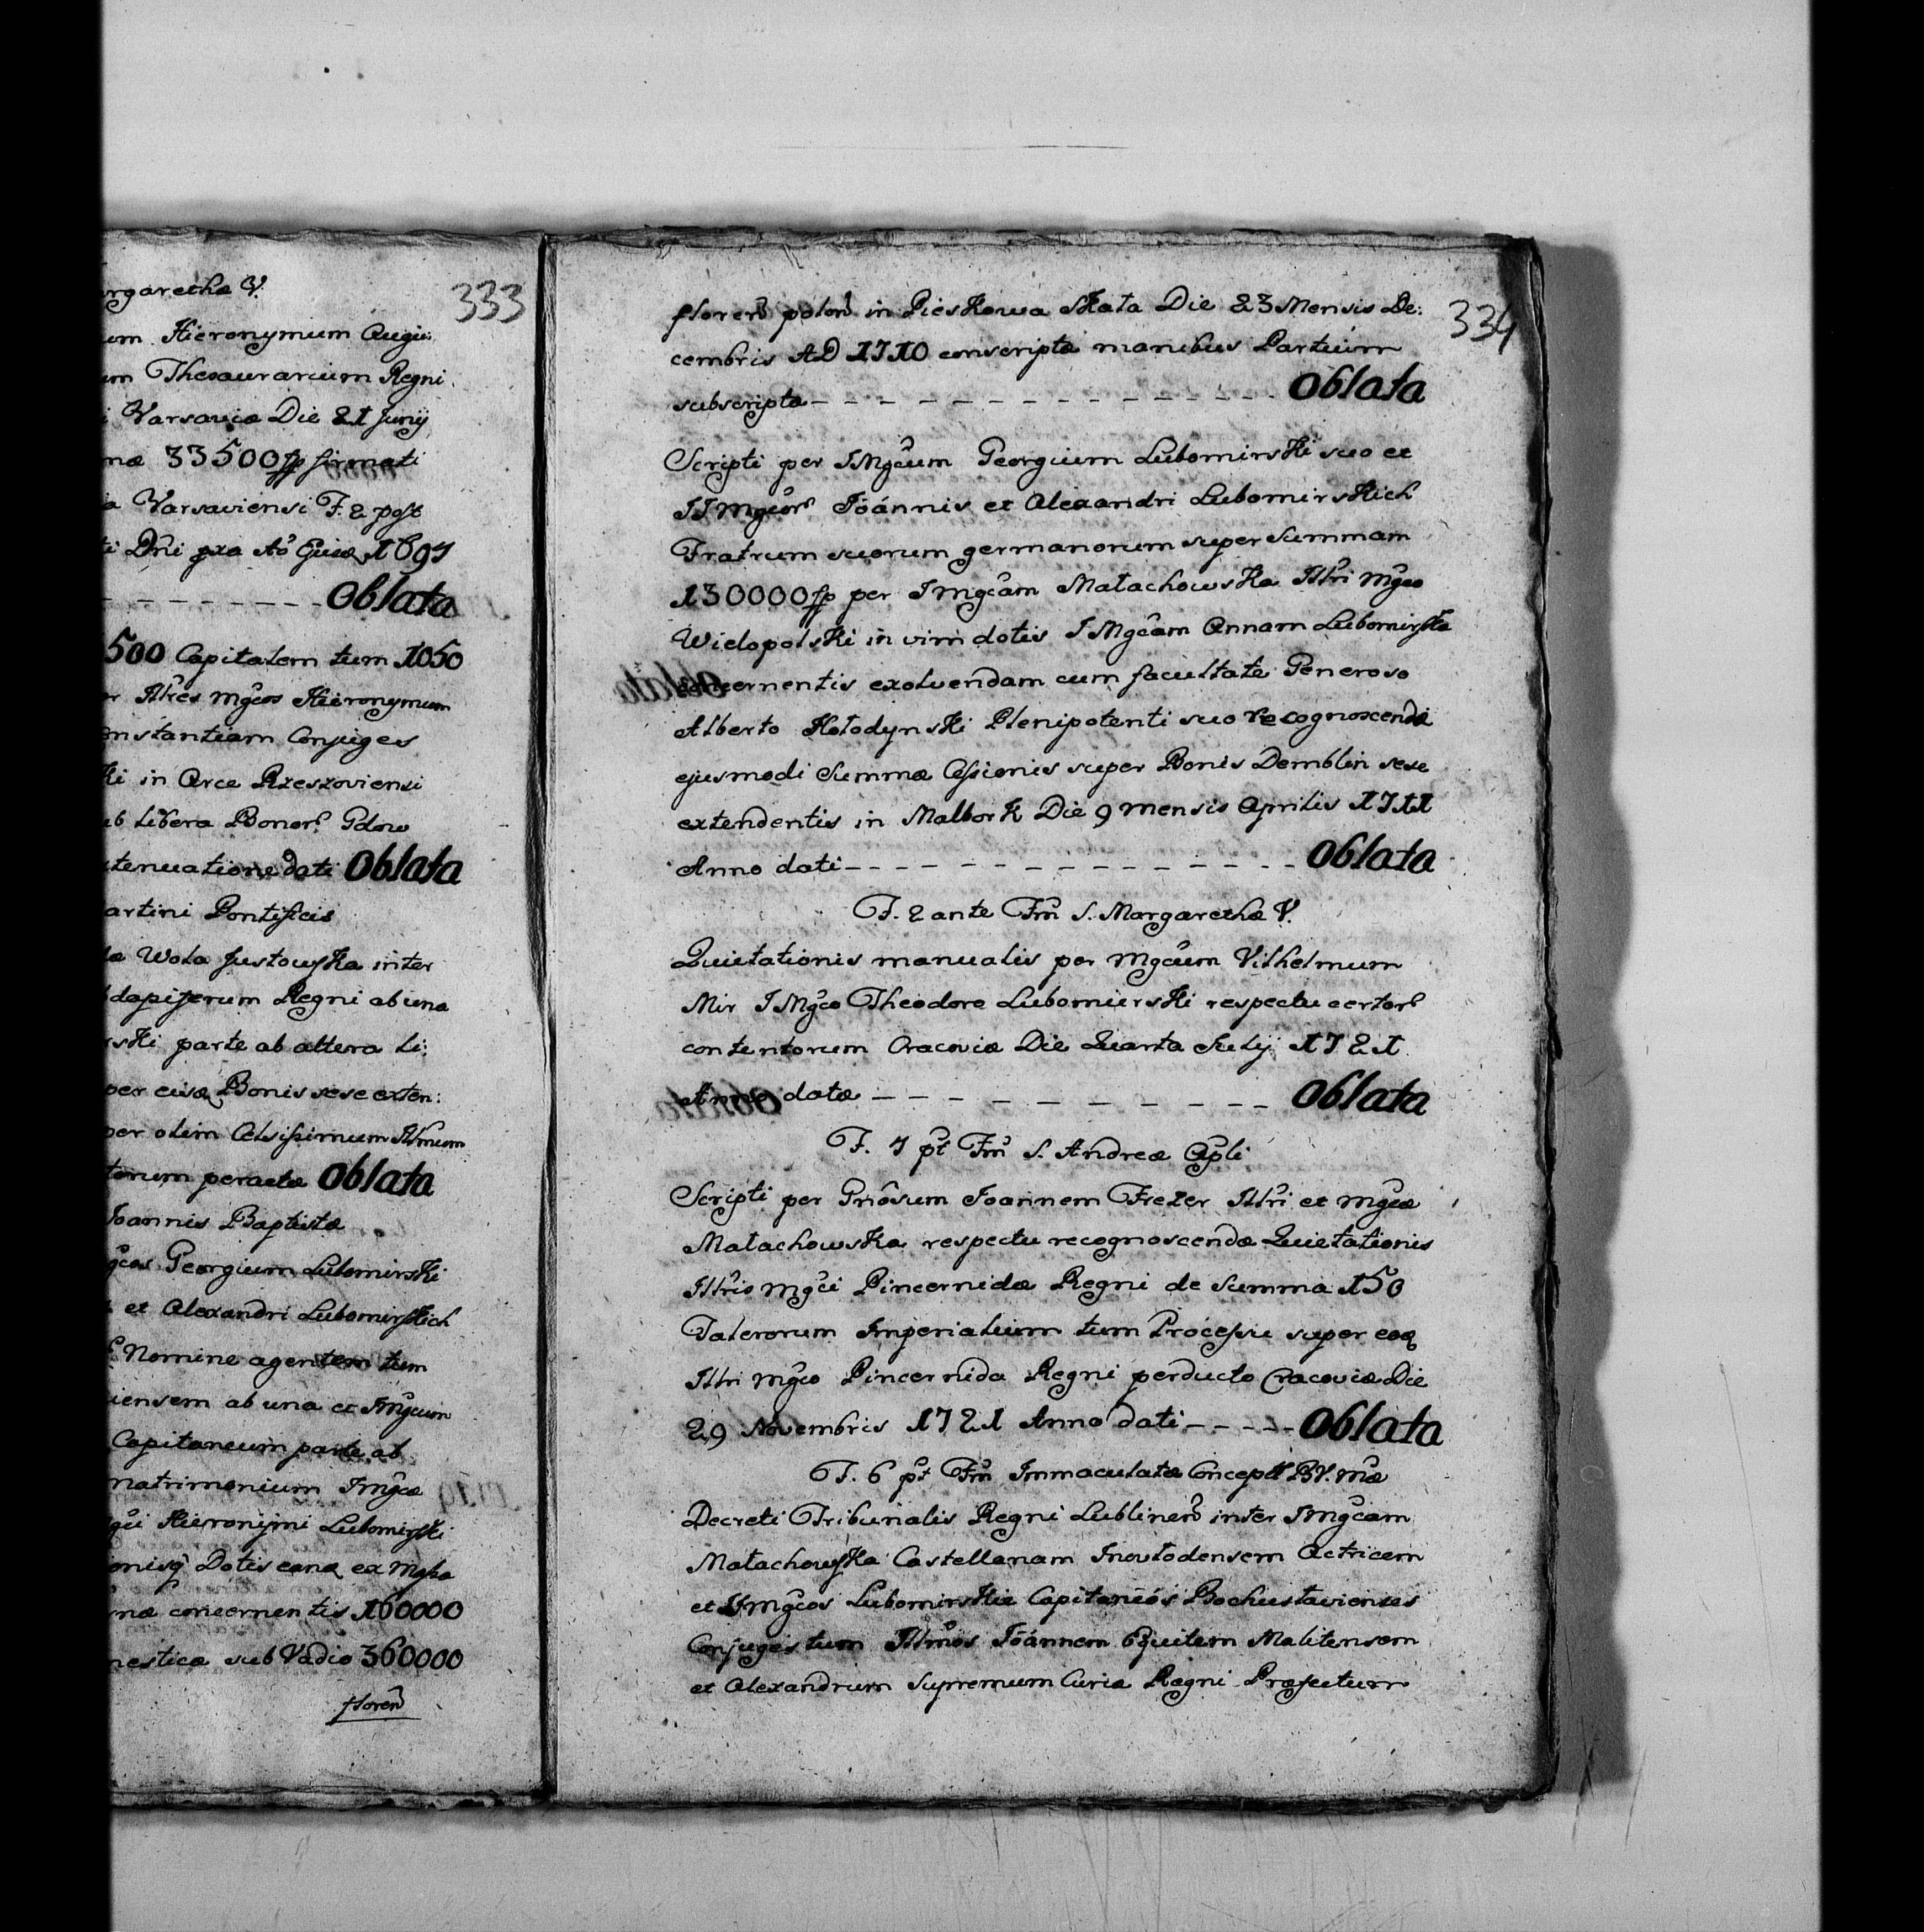 333
rgarethæ V.
um Hieronymum Augu:
um Thesaurarium Regni
i Varsaviæ Die 21 Junij
næ 33500 fp firmati
ia Varsaviensi F. 2 post
ti Dñi pxa Aõ Ejusq 1697
Oblata
500 Capitalem tum 1050
or Illres Mgcos Hieronymum
onstantiam Conjuges
ki in Arce Rzeszoviensi
ub libera Bonor Gdow
xtenuatione dati Oblata
artini Pontificis
la Wola Justowska inter
bdapiferum Regni ab una
rski parte ab altera li:
per eisq Bonis sese exten:
per olim Celsissimum Illmum
torum peractæ Oblata
Joannis Baptistæ
gcos Georgium Lubomirski
et Alexandri Lubomirskich
Nomine agentem tum
iensem ab una et Imgcum
Capitaneum parte ab
matrimonium Imgcæ
gci Hieronymi Lubomirski
onisq Dotis eanq ex Massa
næ concernentis 160000
mesticæ sub Vadio 360000
floren
334
floren polon in Pieskowa Skała Die 23 Mensis De:
cembris AD 1710 conscripta manibus Partium
subscripta Oblata
Scripti per IMgcum Georgium Lubomirski suo et
IImgcor Joánnis et Alexandri Lubomirskich
Fratrum suorum germanorum super Summam
130000 fp per Imgcam Małachowska Illri Mgco
Wielopolski in vim dotis IMgcam Annam Lubomirska
concernentis exolvendam cum facultate Generoso
Alberto Kołodynski Plenipotenti suo recognoscendæ
ejusmodi Summæ Cessionis super Bonis Demblin sese
extendentis in Malbork Die 9 mensis Aprilis 1711
Anno dati Oblata
F. 2 ante Fm S. Margarethæ V.
Quietationis manualis per Mgcum Vilhelmum
Mir IMgco Theodoro Lubomierski respectu certor
contentorum Cracoviæ Die Quarta Julij 1721
Anno datæ Oblata
F. 7 pt Fm S. Andreæ Apli
Scripti per Gnosum Joannem Frezer Illri et Mgcæ
Małachowska respectu recognoscendæ Quietationis
Illris Mgci Pincernidæ Regni de Summa 150
Talerorum Imperialium tum Processu super eoq
Illri Mgco Pincernida Regni perducto Cracoviæ Die
29 Novembris 1721 Anno dati Oblata
F. 6 pt Fm Immaculatæ Concept BV. Mæ
Decreti Tribunalis Regni Lublinen inter Imgcam
Małachowska Castellanam Inowłodensem Actricem
et IImgcos Lubomirskie Capitaneós Bohusłavienses
Conjuges tum Illmos Joánnem Equitem Malitensem
et Alexandrum Supremum Curiæ Regni Præfectum